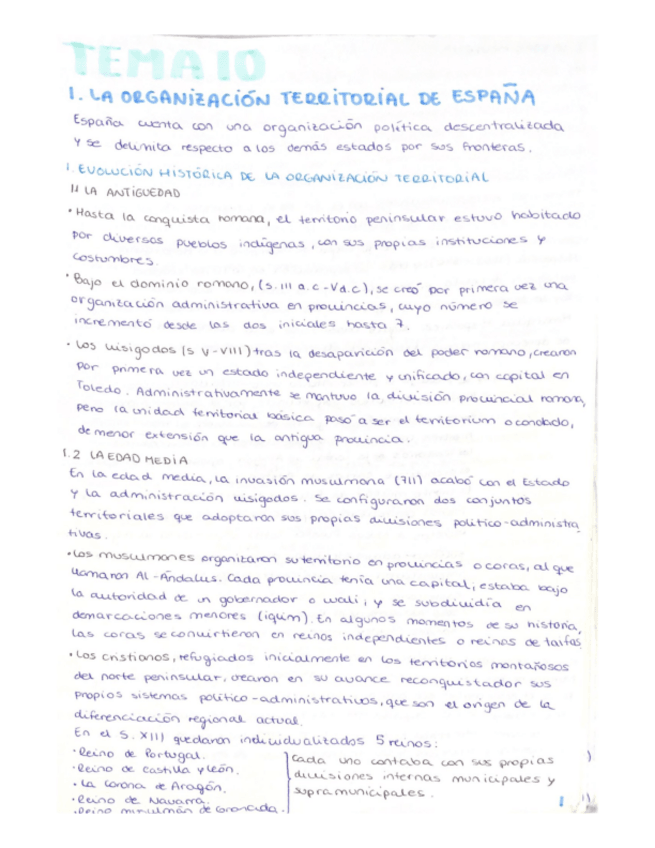 TEMA 10
1. LA ORGANIZACIÓN TERRITORIAL DE ESPAÑA
España cuenta con una organización política descentralizada
y se delimita respecto a los demás estados por sus fronteras.
1. EVOLUCIÓN HISTÓRICA DE LA ORGANIZACIÓN TERRITORIAL
1.1 LA ANTIGUEDAD
• Hasta la conquista romana, el territorio peninsular estuvo habitado
por diversos pueblos indígenas, con sus propias instituciones y
costumbres.
• Bajo el dominio romano, (s. III a.c - V d.c), se creó por primera vez una
organización administrativa en provincias, cuyo número se
incrementó desde las dos iniciales hasta 7.
• Los visigodos (s V - VIII) tras la desaparición del poder romano, crearon
por primera vez un estado independiente y unificado, con capital en
Toledo. Administrativamente se mantuvo la división provincial romana,
pero la unidad territorial básica pasó a ser el territorium o condado,
de menor extensión que la antigua provincia.
1.2 LA EDAD MEDIA
En la edad media, la invasión musulmana (711) acabó con el Estado
y la administración visigodos. Se configuraron dos conjuntos
territoriales que adoptaron sus propias divisiones político-administra
tivas.
• Los musulmones organizaron su territorio en provincias o coras, al que
llamaron Al-Ándalus. Cada provincia tenía una capital, estaba bajo
la autoridad de un gobernador o wali, y se subdividía en
demarcaciones menores (iqlim). En algunos momentos de su historia,
las coras se convirtieron en reinos independientes o reinos de taifas.
• Los cristianos, refugiados inicialmente en los territorios montañosos
del norte peninsular, crearon en su avance reconquistador sus
propios sistemas político-administrativos, que son el origen de la
diferenciación regional actual.
En el S. XIII quedaron individualizados 5 reinos:
• Reino de Portugal.
• Reino de Castilla y León.
• La Corona de Aragón.
• Reino de Navarra.
• Reino musulmán de Granada.
Cada uno contaba con sus propias
divisiones internas municipales y
supramunicipales.
1